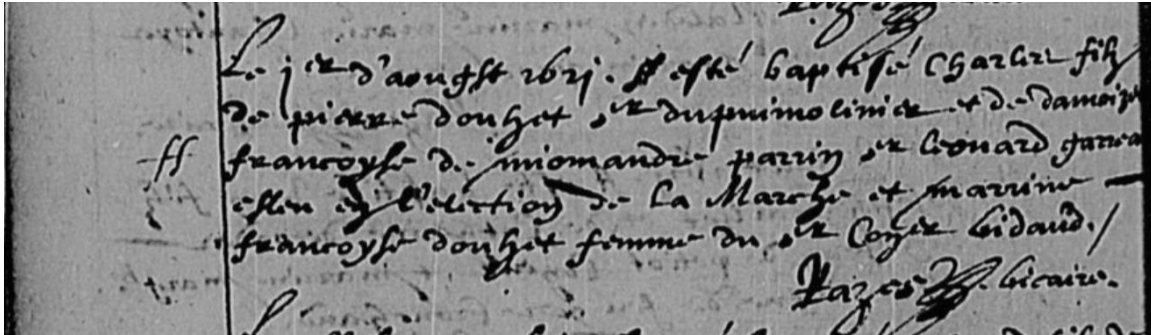 Le jer d'aougst 1621. A esté baptisé Charles filz
de pierre douhet sr du puimolinier et de damoizelle
ff francoyse de miomandre parrin sr leonard garreau
esleu en l'election de La Marche et marrine
francoyse douhet femme du sr bidaud./
vicaire.